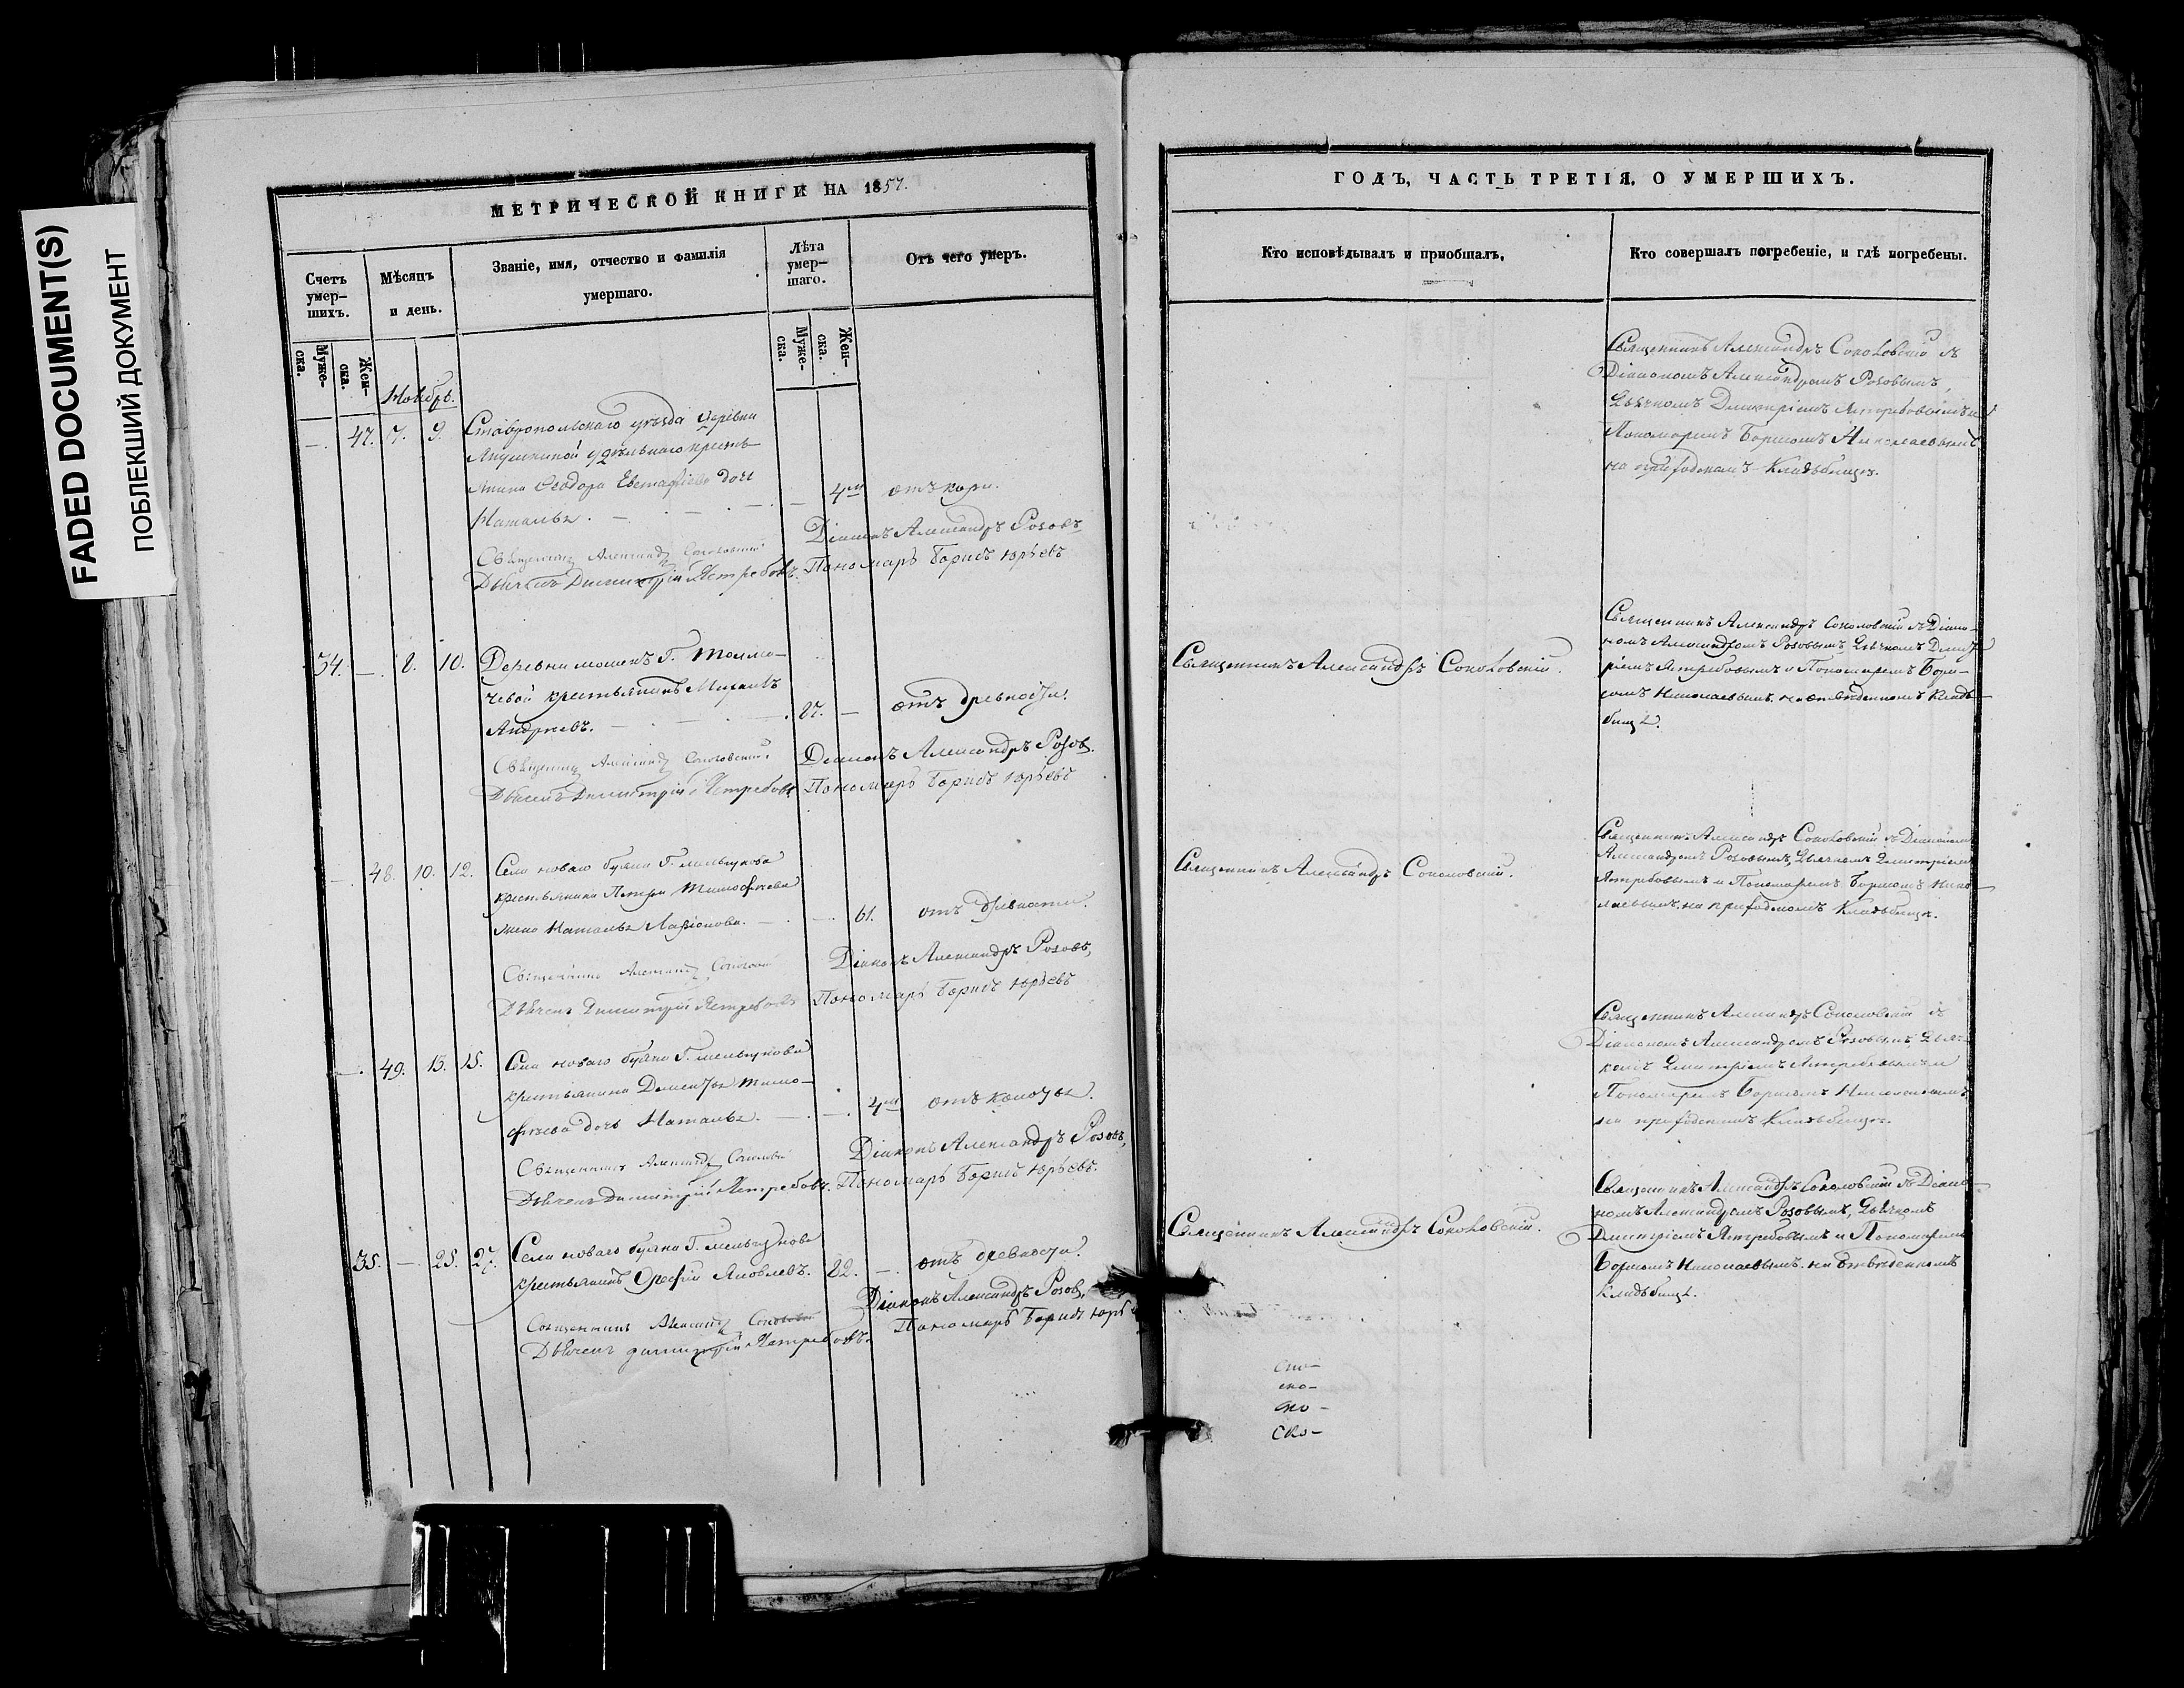 FADED DOCUMENT(S)
ПОБЛЕКШИЙ ДОКУМЕНТ
МЕТРИЧЕСКОЙ КНИГИ НА 1857.
Счетъ умер-шихъ.
Мѣсяцъ и день.
Званіе, имя, отчество и фамилія умершаго.
Лѣта умер-шаго.
Отъ чего умеръ.
Муже-ска.
Жен-ска.
Муже-ска.
Жен-ска.
Ноябрь.
—. 47. 7. 9. Ставропольскаго уѣзда деревни
удѣльнаго кресть-
янина Ѳеодора дочь
Наталья. — 4 отъ кори.
Священникъ Александръ Соколовскій Діаконъ Александръ Розовъ
Дьячекъ Димитрій Ястребовъ. Пономарь Борисъ Юрьевъ
34. —. 8. 10. Деревни Г. Толма-
чевой крестьянинъ Михаилъ
Андреевъ. — 87. — отъ древности.
Священникъ Александръ Соколовскій. Діаконъ Александръ Розов.
Дьячекъ Димитрій Ястребовъ Пономарь Борисъ Юрьевъ
—. 48. 10. 12. Села новаго буяна Г. мельгунова
крестьянина Петра Тимофеева
жена Наталья Ларіонова. — 61. отъ древности.
Священникъ Александръ Соколовскій Діаконъ Александръ Розовъ,
Дьячекъ Димитрій Ястребовъ Пономарь Борисъ Юрьевъ
—. 49. 13. 15. Села новаго буяна Г. мельгунова
крестьянина Дементья Тимо-
феева дочь Наталья. — 4 отъ коноты.
Священникъ Александръ Соколовскій Діаконъ Александръ Розовъ,
Дьячекъ Димитрій Ястребовъ. Пономарь Борисъ Юрьевъ.
35. — 25. 27. Села новаго буяна Г. мельгунова
крестьянинъ Яковлевъ. 82. — отъ древности.
Священникъ Александръ Соколовскій Діаконъ Александръ Розов,
Дьячекъ Димитрій Ястребовъ. Пономарь Борисъ Юрь
ГОДЪ, ЧАСТЬ ТРЕТІЯ, О УМЕРШИХЪ.
Кто исповѣдывалъ и приобщалъ.
Кто совершалъ погребеніе, и гдѣ погребены.
Священникъ Александръ Соколовскій съ
Діакономъ Александромъ Розовымъ,
Дьячкомъ Димитріемъ Ястребовымъ и
Пономаремъ Борисомъ Николаевымъ
на приходскомъ Кладбищѣ.
Священникъ Александръ Соколовскій.
Священникъ Александръ Соколовскій съ Діако-
номъ Александромъ Розовымъ, Дьячкомъ Димит-
ріемъ Ястребовымъ и Пономаремъ Бори-
сомъ Николаевымъ. на отведенномъ Клад-
бищѣ.
Священникъ Александръ Соколовскій.
Священникъ Александръ Соколовскій съ Діакономъ
Александромъ Розовымъ, Дьячкомъ Димитріемъ
Ястребовымъ и Пономаремъ Борисомъ Нико-
лаевымъ. на приходскомъ Кладбищѣ.
Священникъ Александръ Соколовскій съ
Діакономъ Александромъ Розовымъ, Дьяч-
комъ Димитріемъ Ястребовымъ и
Пономаремъ Борисомъ Николаевымъ
на приходскомъ Кладбищѣ.
Священникъ Александръ Соколовскій.
Священникъ Александръ Соколовскій съ Діако-
номъ Александромъ Розовымъ, Дьячкомъ
Димитріемъ Ястребовымъ и Пономаремъ
Борисомъ Николаевымъ. на отведенномъ
Кладбищѣ.
ско-